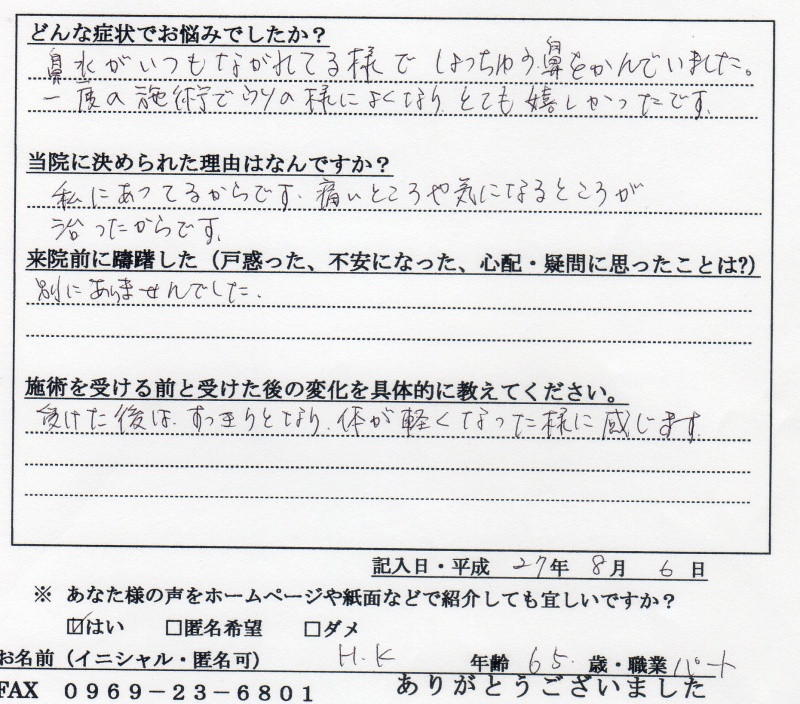 どんな症状でお悩みでしたか？
鼻水がいつもながれてる様で しょっちゅう鼻をかんでいました。
一度の施術でウソの様によくなり、とても嬉しかったです。
当院に決められた理由はなんですか？
私にあってるからです。痛いところや気になるところが
治ったからです。
来院前に躊躇した（戸惑った、不安になった、心配・疑問に思ったことは?）
別にありませんでした。
施術を受ける前と受けた後の変化を具体的に教えてください。
受けた後は、すっきりとなり、体が軽くなった様に感じます
記入日・平成 27年 8月 6日
※ あなた様の声をホームページや紙面などで紹介しても宜しいですか？
☑はい □匿名希望 □ダメ
お名前（イニシャル・匿名可） H.K 年齢 65. 歳・職業 パート
FAX ０９６９－２３－６８０１ ありがとうございました